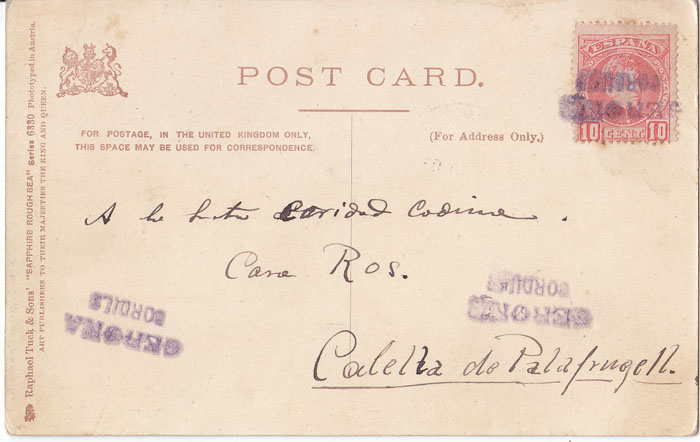 POST CARD.
FOR POSTAGE, IN THE UNITED KINGDOM ONLY,
THIS SPACE MAY BE USED FOR CORRESPONDENCE.
(For Address Only,)
ESPAÑA
10 CENT 10
GERONA
BORDILS
A la Srta Caridad Codina.
Casa Ros.
Calella de Palafrugell.
BORDILS
GERONA
BORDILS
GERONA
Raphael Tuck & Sons' "SAPPHIRE ROUGH SEA" Series 6350 Phototyped in Austria.
ART PUBLISHERS TO THEIR MAJESTIES THE KING AND QUEEN.